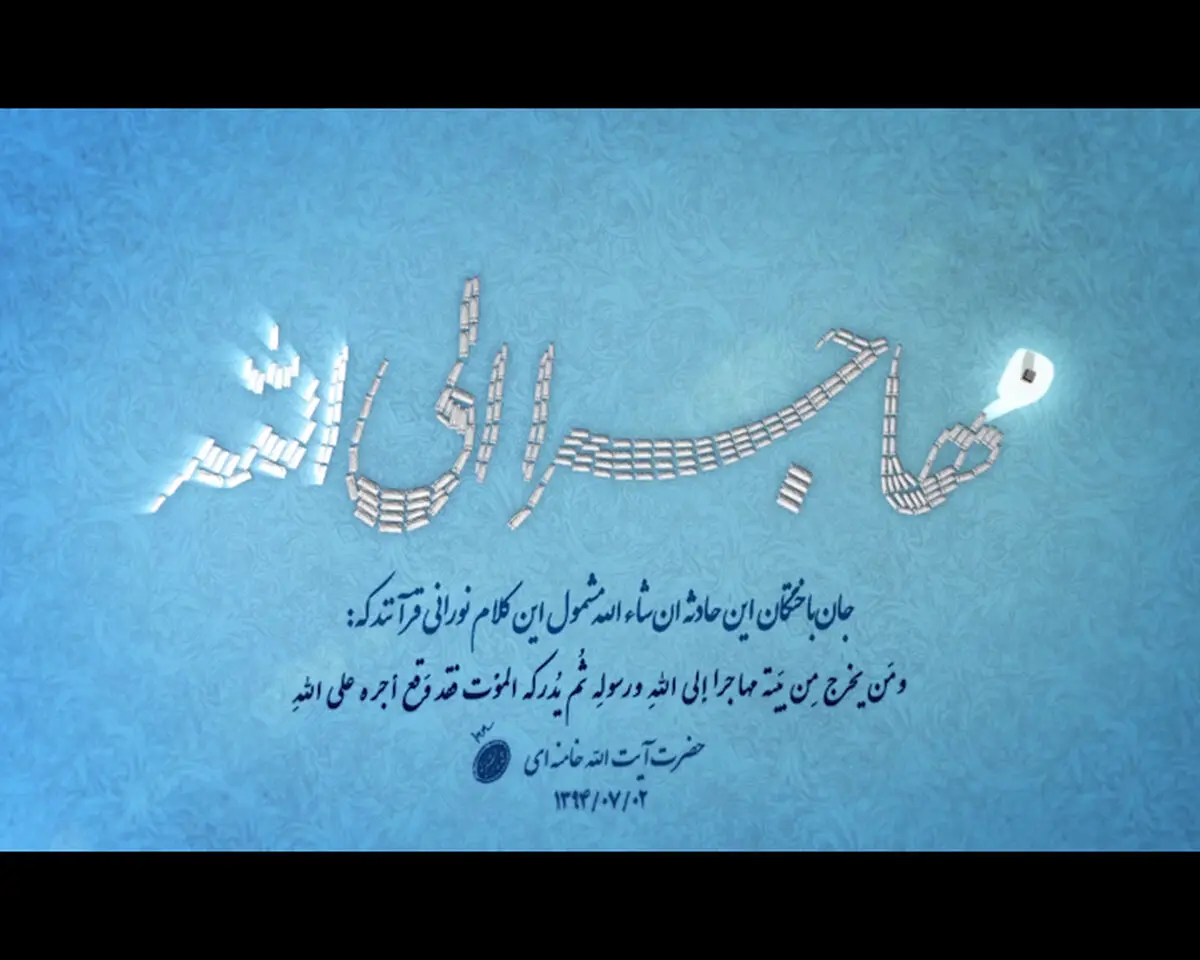 مهاجر الی الله
جان باختگان این حادثه ان شاء الله مشمول این کلام نورانی قرآنند که:
ومَن یخرج مِن بَیته مهاجرا إلی اللهِ ورسولِهِ ثُم یُدرکه الموْت فقد وَقع أجره علی اللهِ
حضرت آیت الله خامنه ای
۱۳۹۴/۰۷/۰۲